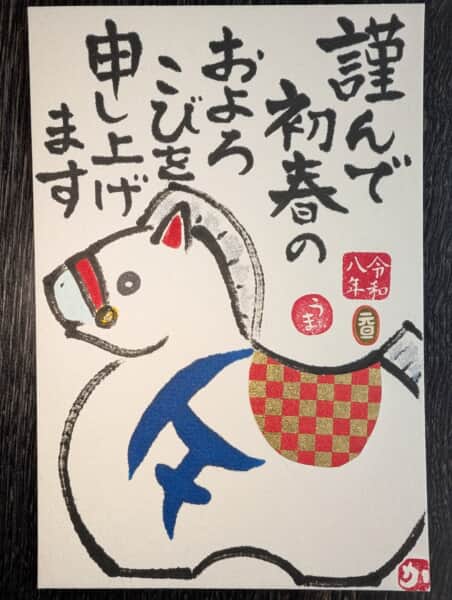 謹んで
初春の
およろ
こびを
申し上げ
ます
令和
八年
元旦
うま